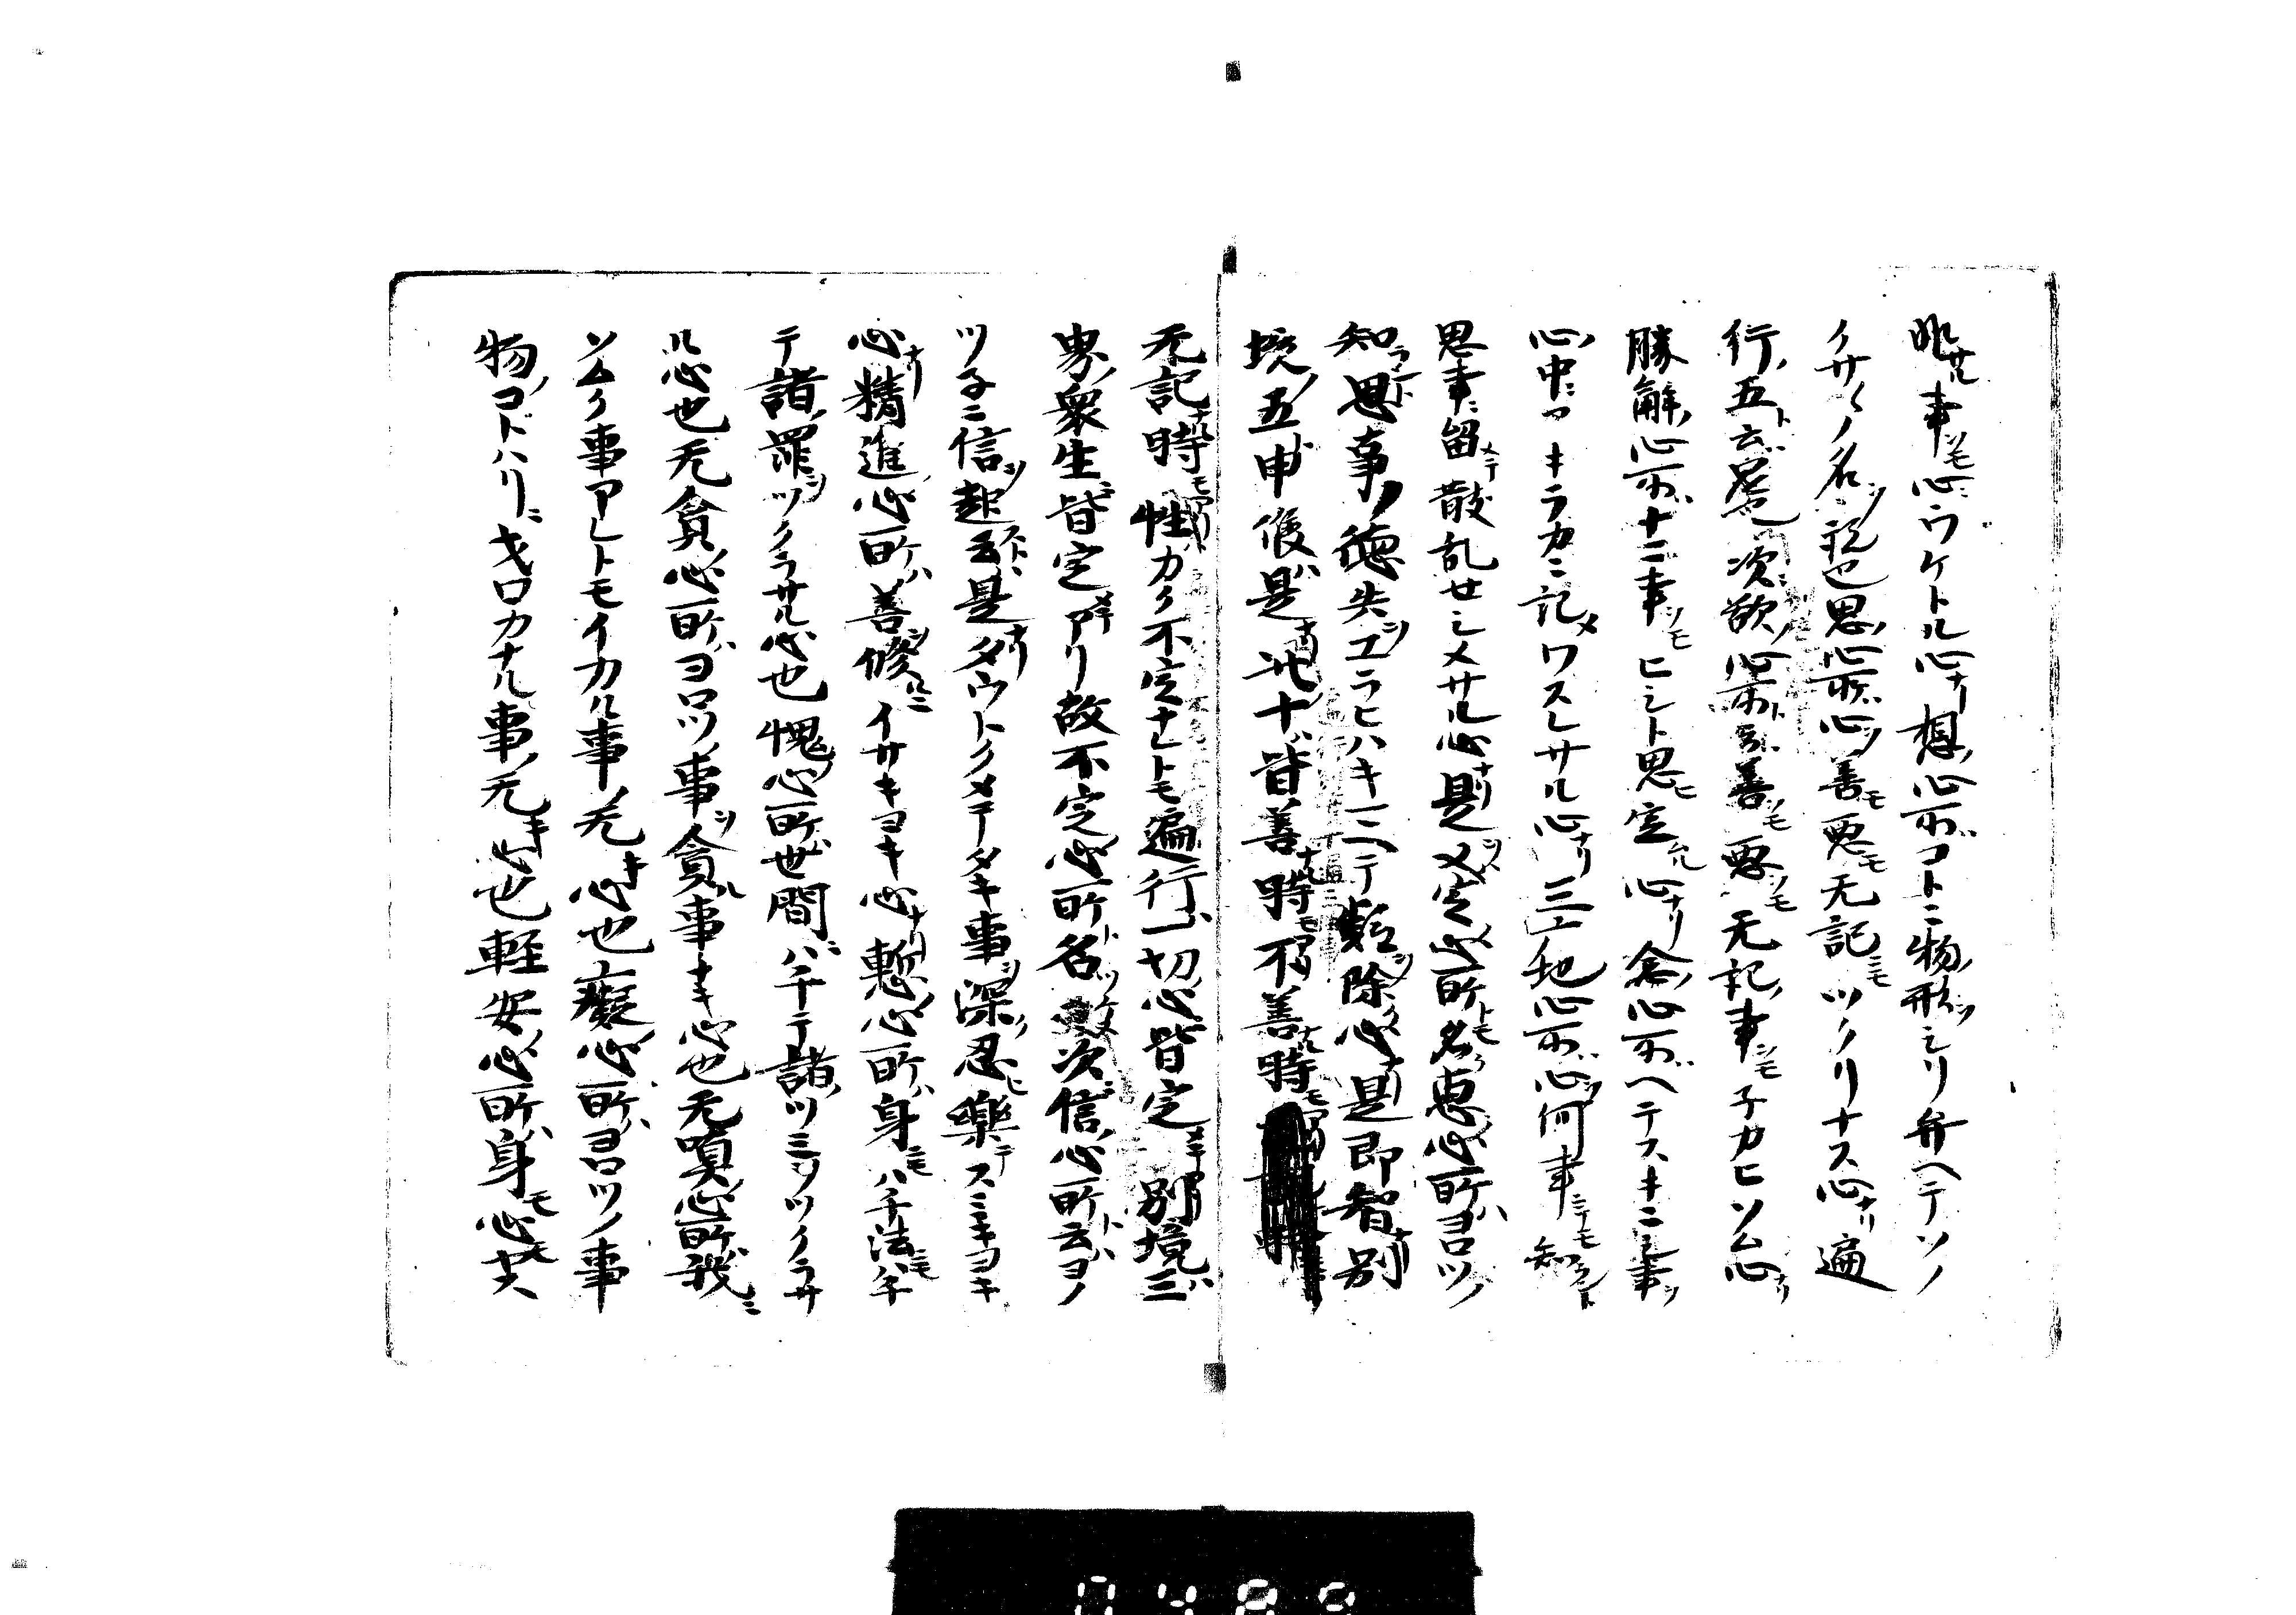 事ヲモ心ニウケトル心ナリ想ノ心所ハコトニ物ノ形ヲシリ弁ヘテソノ
クサクサノ名ヲ説也思ノ心所ハ心ヲ善ニモ悪ニモ无記ニモツクリナス心ナリ遍
行ノ五ト云ハ是也次欲ノ心所ト云ハ善ヲモ悪ヲモ无記ノ事ヲモネカヒソム心ナリ
勝解ノ心所ハ十ニ事ヲモヒシト思ヒ定ムル心ナリ念ノ心所ハヘテスキニシ事ヲ
心ノ中ニアキラカニ記メワスレサル心ナリ三广地ノ心所ハ心ヲ何事ニモ知ラムト
思事ニ留メテ散乱セシメサル心ナリ是ヲ又定ノ心所トモ名ク恵ノ心所ハヨロツノ
知ラムト思事ノ徳失ヲエラヒハキマヘテ疑ヲ除ク心ナリ是即智ナリ別
境ノ五ト申候ハ是ナリ此十ハ皆善ナル時モ不善ナル時モ
无記ナル時モ性カク不定ナレトモ遍行ハ一切ノ心ニ皆定メテ別境ハ三
界ノ衆生ニ皆定メテアリ故不定ノ心所ト名ツ次信ノ心所ト云ハヨノ
ツネニ信ヲ起スト云ハ是ナリタウトクメテタキ事ヲ深ク忍ヒ樂テスミキヨキ
心ナリ精進ノ心所ハ善ヲ修ルニイサキヨキ心ナリ慙ノ心所ハ身ニモハチ法ニモハチ
テ諸ノ罪ヲツクラサル心也愧ノ心所ハ世間ニハチテ諸ノツミヲツクラサ
ル心也无貪ノ心所ハヨロツノ事ヲ貪ル事ナキ心也无嗔ノ心所ハ我ニ
ソムク事アレトモイカル事ノ无キ心也无癡ノ心所ハヨロツノ事
物ノコトハリニヲロカナル事ノ无キ心也軽安ノ心所ハ身モ心モ